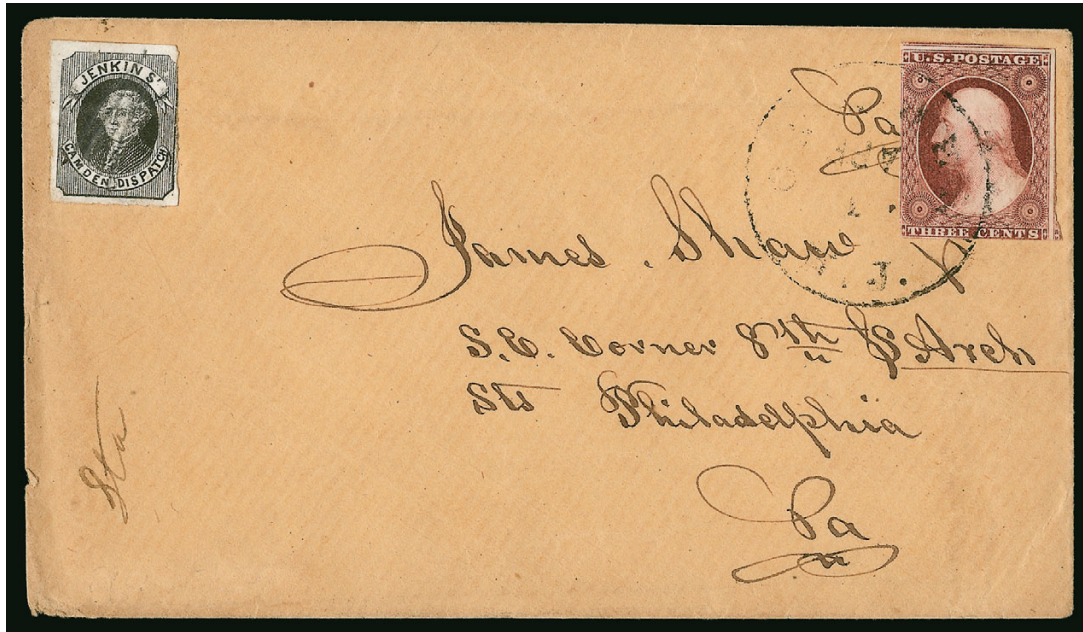 JENKINS'
CAMDEN DISPATCH
U.S. POSTAGE
THREE CENTS
Pa
James Shaw
S.E. Corner 8th & Arch
Sts Philadelphia
Pa
J.
Sta